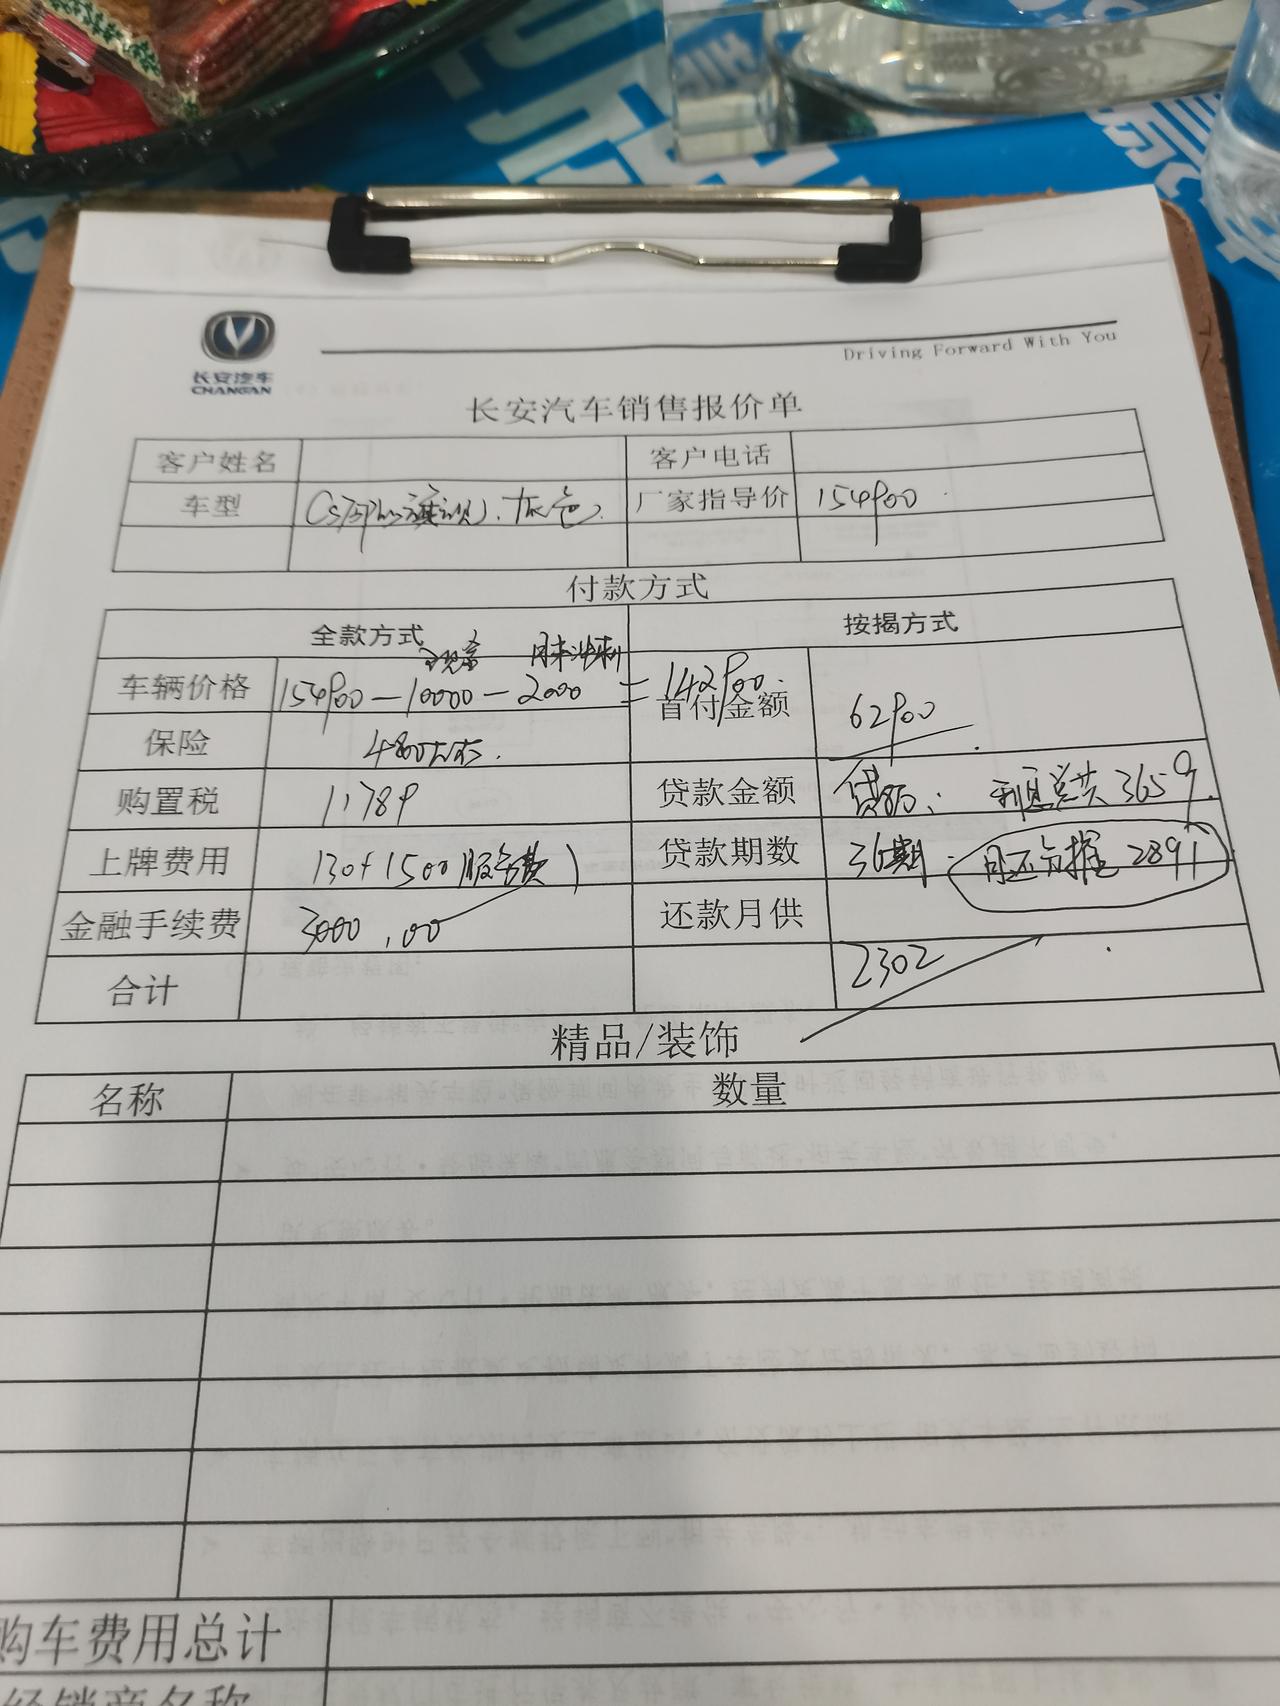 长安汽车
CHANGAN
Driving Forward With You
长安汽车销售报价单
客户姓名 客户电话
车型 灰色 厂家指导价 154900
付款方式
全款方式 按揭方式
车辆价格 154900－10000－2000＝142900 首付金额 62900
保险 购置税 11789 贷款金额 利息总共3659
上牌费用 130+1500(服务费) 贷款期数 36期 2891
金融手续费 3000.00 还款月供
合计 2302
精品/装饰
名称 数量
购车费用总计
经销商名称